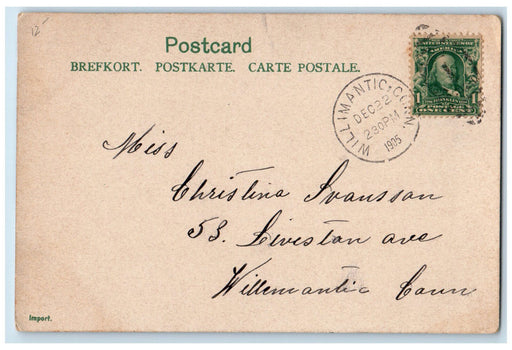 Postcard
BREFKORT. POSTKARTE. CARTE POSTALE.
WILLIMANTIC, CONN.
DEC 22
230 PM
1905
1
1
Miss
Christina Svansson
53. Liviston ave
Willemantic Conn
Import.